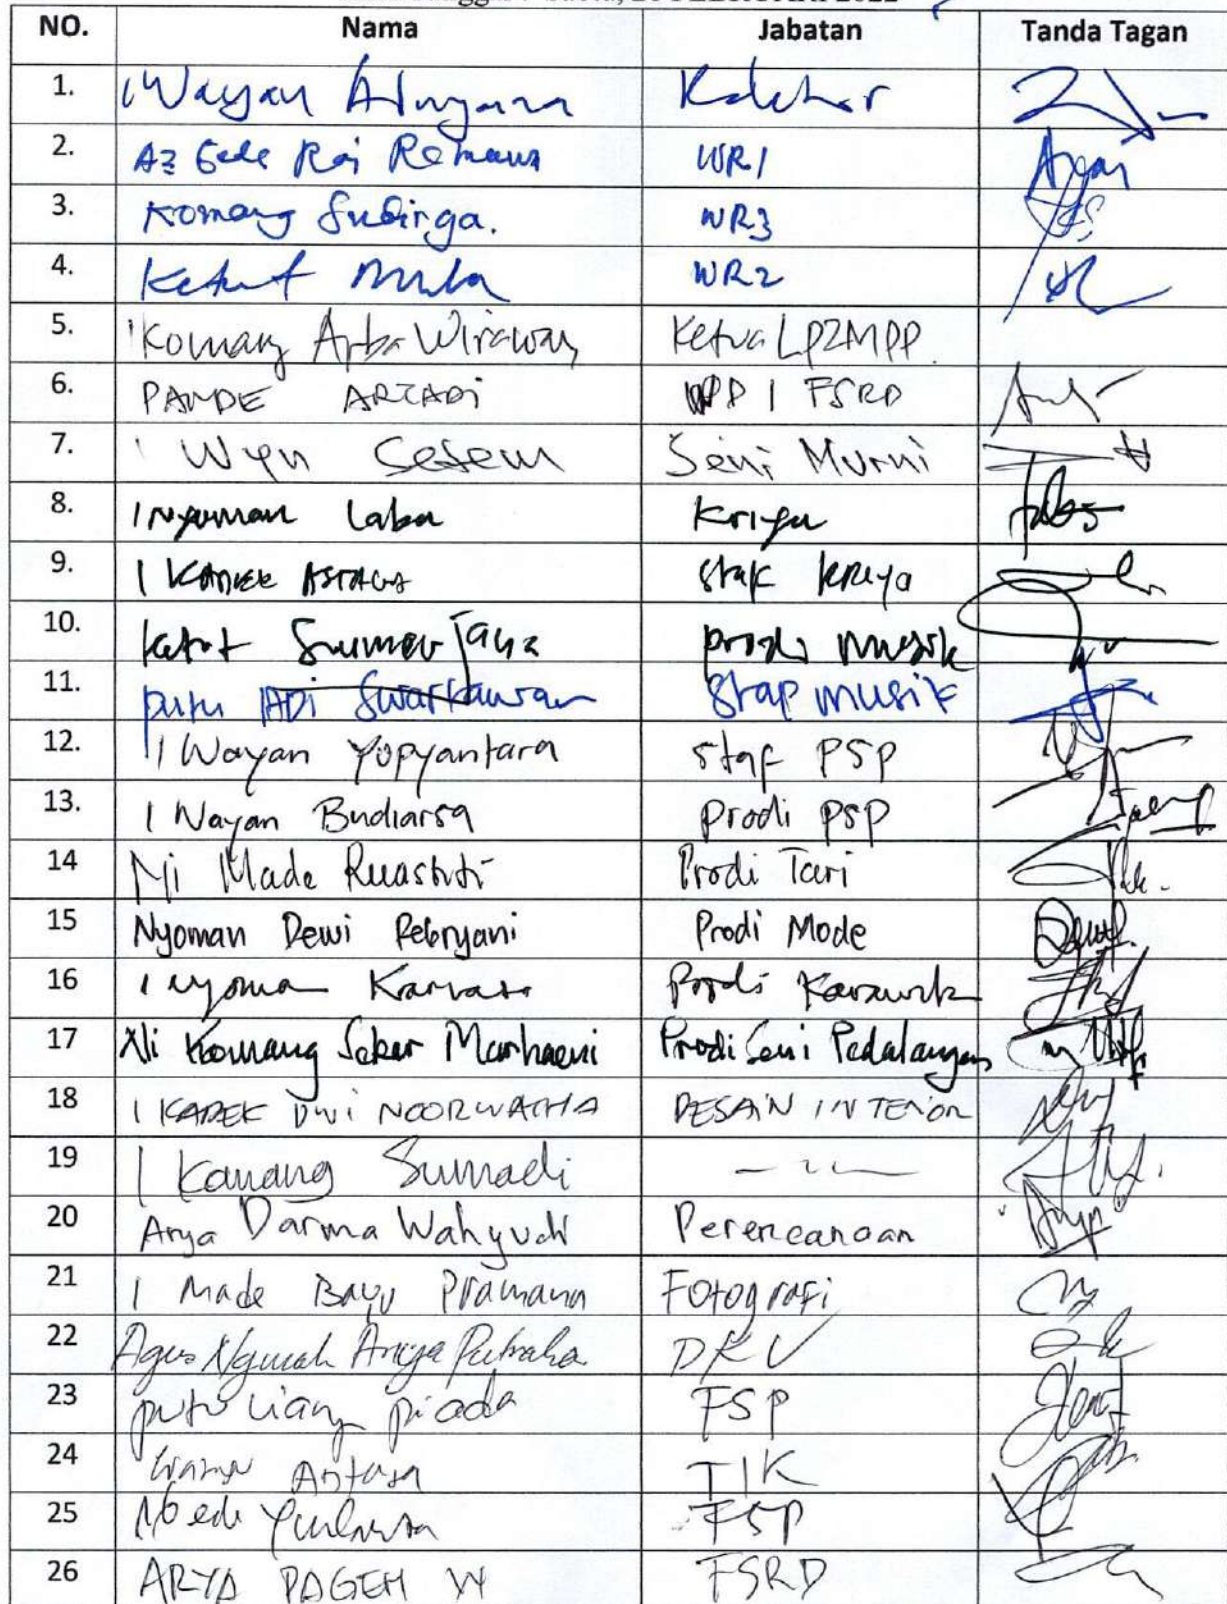 FEBRUARI 2022
NO. Nama Jabatan Tanda Tagan
1. I Wayan Adnyana Rektor
2. Az Gede Rai Remawa WR1
3. Komang Sudirga. WR3
4. Ketut Mula WR2
5. I Komang Arba Wirawan Ketua LP2MPP.
6. PANDE ARTADI WD 1 FSRD
7. I Wyn Sesem Seni Murni
8. I Nyoman Laba Kriya
9. I KADEK ASTAWA Staf Kriya
10. Ketut Sumerjana prodi musik
11. putu ADi Swartawan Stap musik
12. I Wayan Yopyantara staf PSP
13. I Nayan Budiarsa Prodi PSP
14 Ni Made Ruastiti Prodi Tari
15 Nyoman Dewi Pebryani Prodi Mode
16 I nyoman Kariasa Prodi Karawitan
17 Ni Komang Sekar Marhaeni Prodi Seni Pedalangan
18 I KADEK DWi NOORWATHA DESAiN INTERIOR
19 I Komang Sumadi
20 Arya Darma Wahyudi Perencanaan
21 I Made Bayu Pramana Fotografi
22 Agus Ngurah Arya Putraka DKV
23 putu liang piada FSP
24 Antara TIK
25 FSP
26 ARYA PAGEH W FSRD